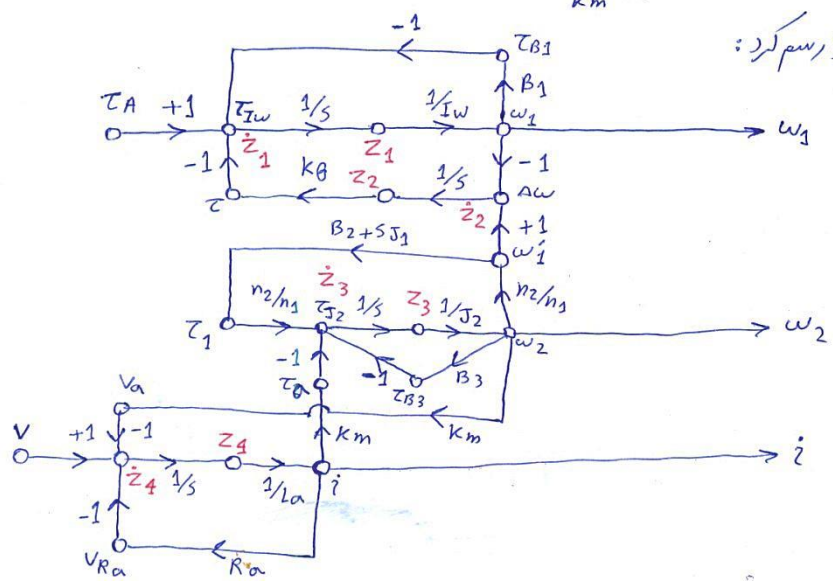 km
رسم کرد :
-1
τB1
B1
τA
+1
τIω
1/s
1/Iω
ω1
ω1
ż1
z1
-1
-1
kθ
z2
1/s
Δω
τ
ż2
+1
B2+SJ1
ω1'
ż3
n2/n1
τJ2
1/s
z3
1/J2
n2/n1
τ1
ω2
ω2
-1
-1
B3
τB3
τa
Va
km
km
V
+1
-1
z4
ż4
1/s
1/La
i
i
-1
VRa
Ra